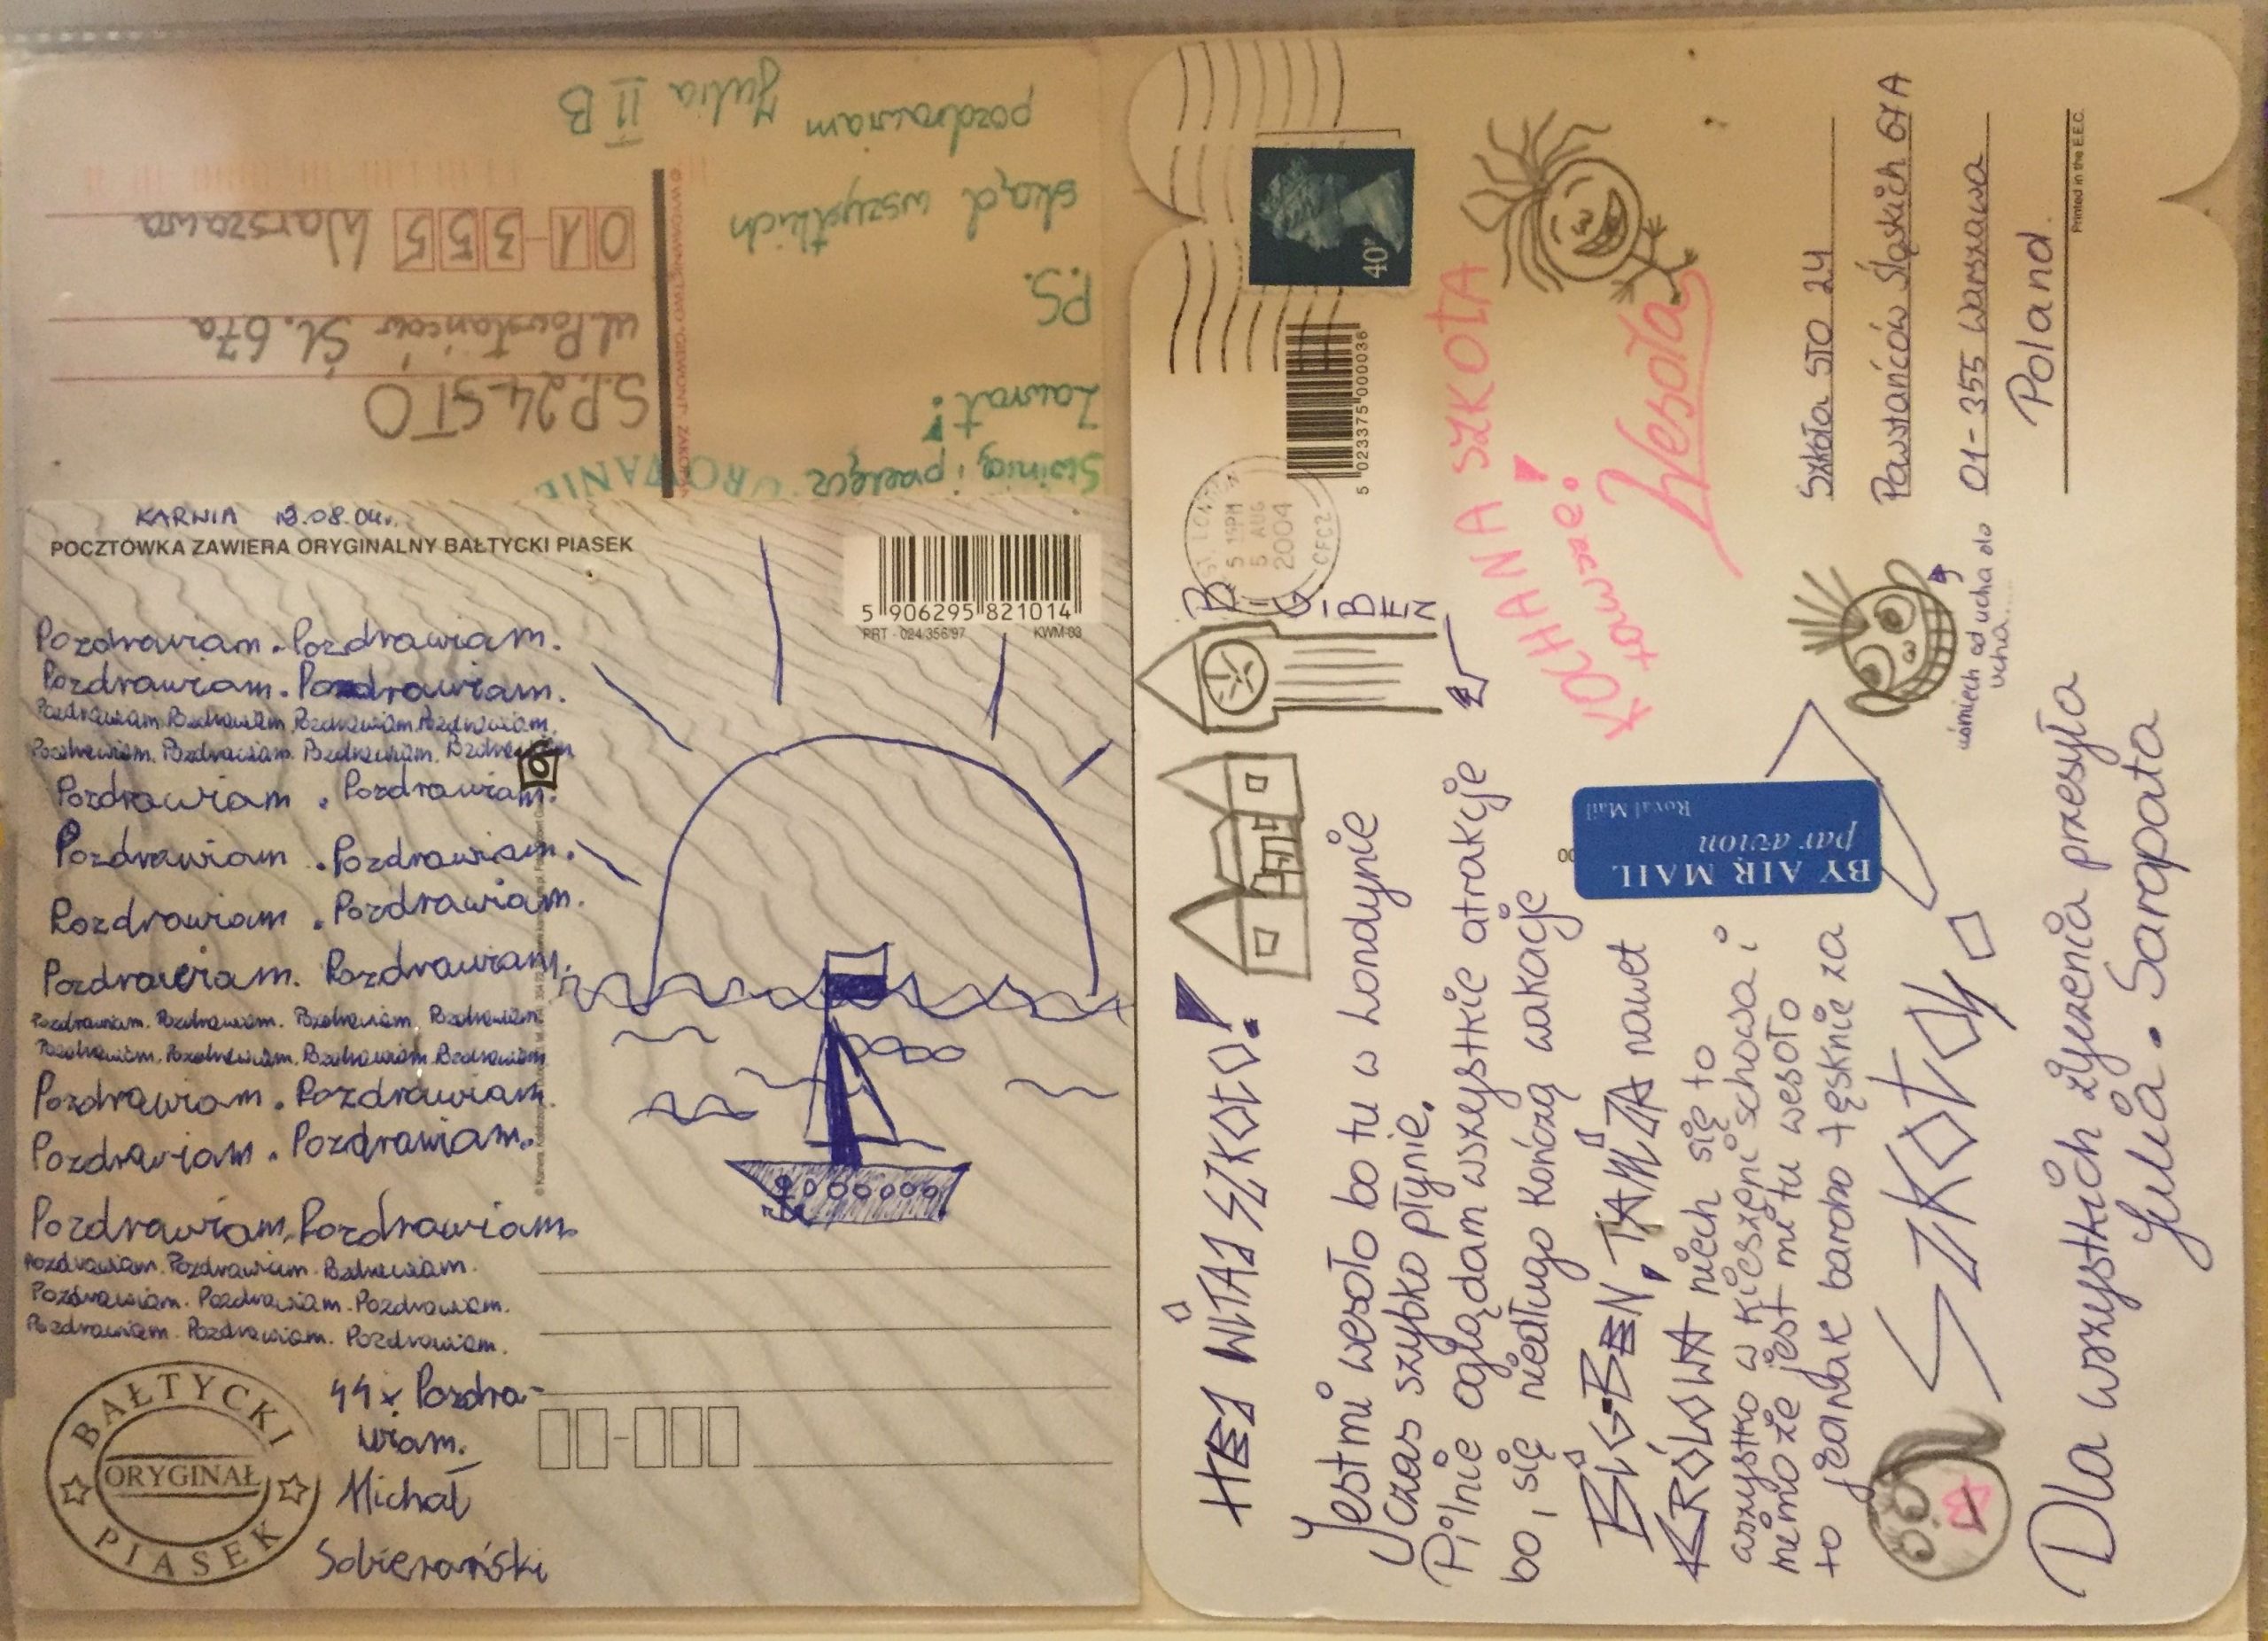 KARNIA 13.08.04r.
POCZTÓWKA ZAWIERA ORYGINALNY BAŁTYCKI PIASEK
5 906295 821014
PRT - 024/356/97 KWM-03
Pozdrawiam. Pozdrawiam.
Pozdrawiam. Pozdrawiam.
Pozdrawiam. Pozdrawiam. Pozdrawiam. Pozdrawiam.
Pozdrawiam. Pozdrawiam. Pozdrawiam. Pozdrawiam
Pozdrawiam. Pozdrawiam.
Pozdrawiam. Pozdrawiam.
Pozdrawiam. Pozdrawiam.
Pozdrawiam. Pozdrawiam.
Pozdrawiam. Pozdrawiam. Pozdrawiam. Pozdrawiam.
Pozdrawiam. Pozdrawiam. Pozdrawiam. Pozdrawiam
Pozdrawiam. Pozdrawiam.
Pozdrawiam. Pozdrawiam.
Pozdrawiam. Pozdrawiam.
Pozdrawiam. Pozdrawiam. Pozdrawiam.
Pozdrawiam. Pozdrawiam. Pozdrawiam.
Pozdrawiam. Pozdrawiam. Pozdrawiam.
44x Pozdra-
wiam.
Michał
Sobierański
BAŁTYCKI
ORYGINAŁ
PIASEK
Świnią i przełęcz
Zawrat!
P.S.
skąd wszystkich
pozdrawiam Julia II B
WYDAWNICTWO "GEWONT" ZAKOPANE
S.P. 24 STO
ul. Powstańców Śl. 67a
01-355 Warszawa
HEJ WITAJ SZKOŁO!
Jest mi wesoło bo tu w Londynie
Czas szybko płynie.
Pilnie oglądam wszystkie atrakcje
bo, się niedługo kończą wakacje
BIG-BEN, TAMIZA nawet
KRÓLOWA niech się to
wszystko w kieszeni schowa i
mimo że jest mi tu wesoło
to jednak bardzo tęsknię za
SZKOŁĄ.
Dla wszystkich życzenia przesyła
Julia. Sarapata
BIG-BEN
5 15PM
5 AUG
2004
40P
5 023375 000036
KOCHANA SZKOŁA
zawsze!
Wesoła
BY AIR MAIL
par avion
Royal Mail
uśmiech od ucha do
ucha.....
Szkoła STO 24
Powstańców Śląskich 67A
01-355 Warszawa
Poland.
Printed in the E.E.C.